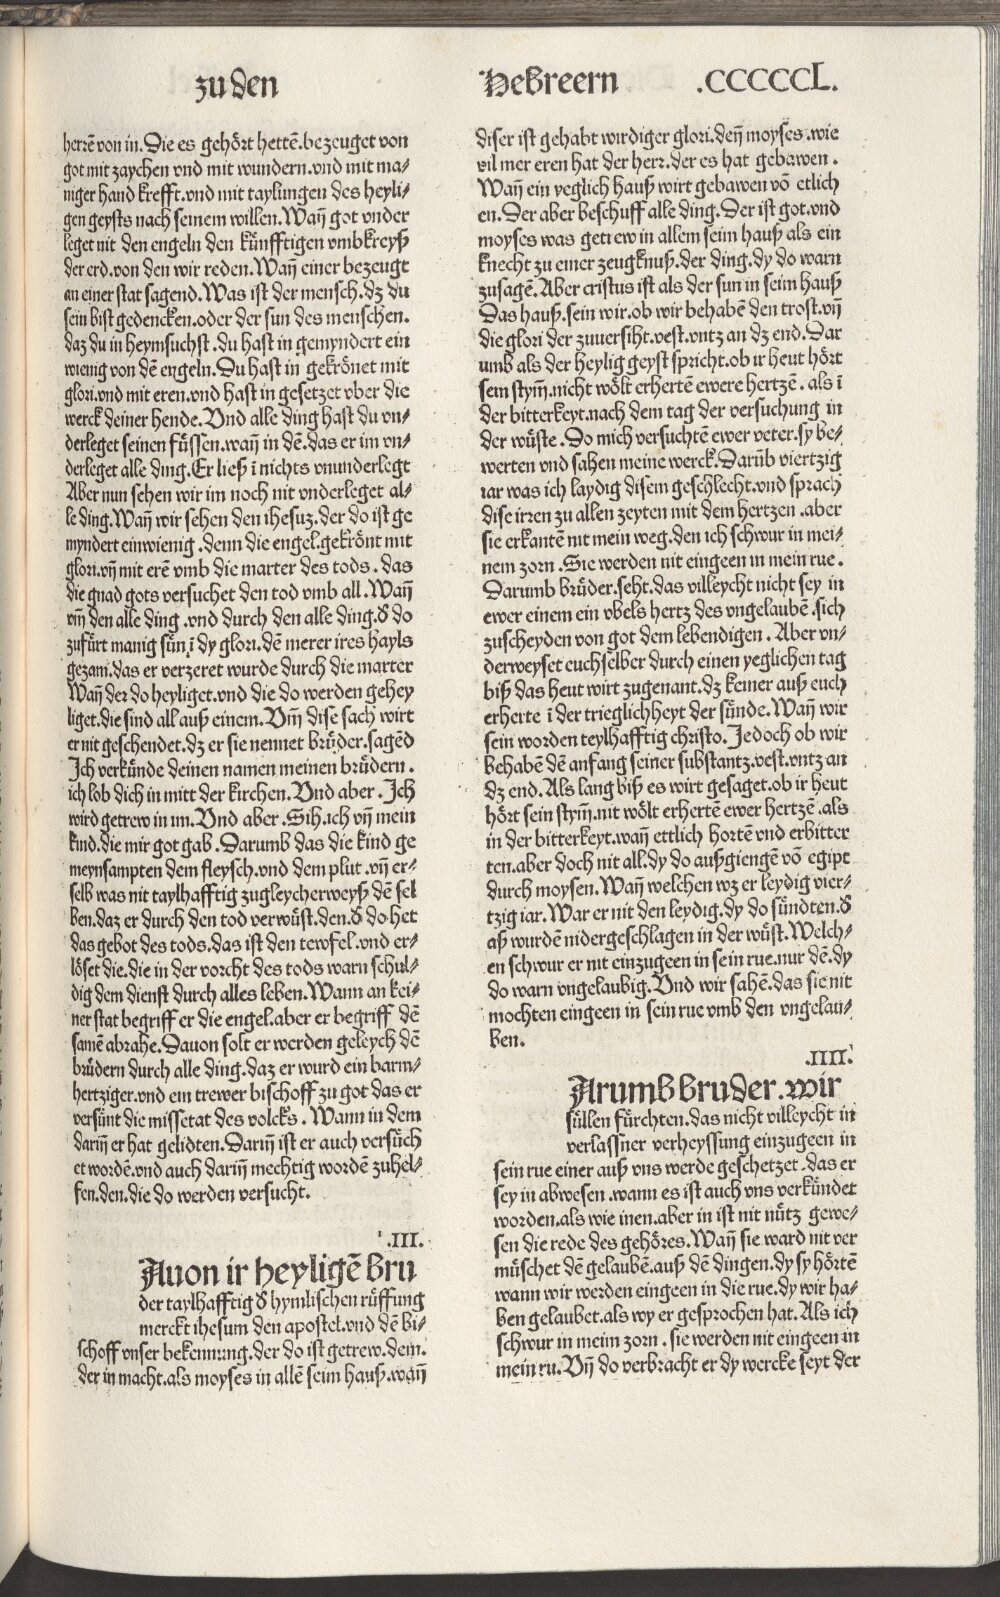 zu den
Hebreern .CCCCCL.
herrē von in. Die es gehört hettē. bezeuget von
got mit zaychen vnd mit wundern. vnd mit ma⸗
niger hand krefft. vnd mit taylungen des heyli⸗
gen geysts nach seinem willen. Wañ got vnder
leget nit den engeln den künfftigen vmbkreyß
der erd. von den wir reden. Wañ einer bezeugt
an einer stat sagend. Was ist der mensch. dz du
sein bist gedencken. oder der sun des menschen.
daz du in heymsuchst. du hast in gemyndert ein
wienig von dē engeln. Du hast in gekrönet mit
glori. vnd mit eren. vnd hast in gesetzet vber die
werck deiner hende. Vnd alle ding hast du vn⸗
derleget seinen füssen. wañ in dē. das er im vn⸗
derleget alle ding. Er ließ ī nichts vnunderlegt
Aber nun sehen wir im noch nit vnderleget al⸗
le ding. Wañ wir sehen den ihesuz. der do ist ge
myndert einwienig. denn die engel. gekrönt mit
glori. vñ mit erē vmb die marter des tods. das
die gnad gots versuchet den tod vmb all. Wañ
vm̄ den alle ding. vnd durch den alle ding. d̄ do
zufürt manig sün ī dy glori. dē merer ires hayls
gezam. das er verzeret wurde durch die marter
Wañ der do heyliget. vnd die do werden gehey
liget. die sind all auß einem. Vm̄ dise sach wirt
er nit geschendet. dz er sie nennet brüder. sagēd
Ich verkünde deinen namen meinen brüdern.
ich lob dich in mitt der kirchen. Vnd aber. Ich
wird getrew in im. Vnd aber. Sih. ich vñ mein
kind. die mir got gab. Darumb das die kind ge
meynsampten dem fleysch. vnd dem plut. vñ er⸗
selb was mit taylhafftig zugleycherweyß dē sel
ben. daz er durch den tod verwüst. den. d̄ do het
das gebot des tods. das ist den tewfel. vnd er⸗
löset die. die in der vorcht des tods warn schul⸗
dig dem dienst durch alles leben. Wann an kei⸗
ner stat begriff er die engel. aber er begriff dē
samē abrahe. Dauon solt er werden geleych dē
brüdern durch alle ding. daz er wurd ein barm⸗
hertziger. vnd ein trewer bischoff zu got das er
versünt die missetat des volcks. Wann in dem
dariñ er hat gelidten. Dariñ ist er auch versüch
et wordē. vnd auch dariñ mechtig wordē zuhel⸗
fen. den. die do werden versucht.
.III.
Auon ir heyligē bru
der taylhafftig d̄ hymlischen rüffung
merckt ihesum den apostel. vnd dē bi⸗
schoff vnser bekennung. der do ist getrew. dem.
der in macht. als moyses in allē seim hauß. wañ
diser ist gehabt wirdiger glori. deñ moyses. wie
vil mer eren hat der herr. der es hat gebawen.
Wañ ein yeglich hauß wirt gebawen vō etlich
en. Der aber beschuff alle ding. Der ist got. vnd
moyses was getrew in allem seim hauß als ein
knecht zu einer zeugknuß. der ding. dy do warn
zusagē. Aber cristus ist als der sun in seim hauß
Das hauß. sein wir. ob wir behabē den trost. vñ
die glori der zuuersiht. vest. vntz an dz end. Dar
umb als der heylig geyst spricht. ob ir heut hört
sein stym̄. nicht wölt erhertē ewere hertzē. als ī
der bitterkeyt. nach dem tag der versuchung in
der wüste. Do mich versuchtē ewer veter. sy be⸗
werten vnd sahen meine werck. Darūb viertzig
iar was ich laydig disem geschlecht. vnd sprach
dise irren zu allen zeyten mit dem hertzen. aber
sie erkantē nit mein weg. den ich schwur in mei⸗
nem zorn. Sie werden nit eingeen in mein rue.
Darumb brüder. seht. das villeycht nicht sey in
ewer einem ein vbels hertz des vngelaubē. sich
zuscheyden von got dem lebendigen. Aber vn⸗
derweyset euchselber durch einen yeglichen tag
biß das heut wirt zugenant. dz keiner auß euch
erherte ī der trieglichheyt der sünde. Wañ wir
sein worden teylhafftig christo. Jedoch ob wir
behabē dē anfang seiner substantz. vest. vntz an
dz end. Als lang biß es wirt gesaget. ob ir heut
hört sein stym̄. nit wölt erhertē ewer hertzē. als
in der bitterkeyt. wañ ettlich hortē vnd erbitter
ten. aber doch nit all. dy do außgiengē vō egipt
durch moysen. Wañ welchen wz er leydig vier⸗
tzig iar. War er nit den leydig. dy do sündten. d̄
aß wurdē nidergeschlagen in der wüst. Welch⸗
en schwur er nit einzugeen in sein rue. nur dē. dy
do warn vngelaubig. Vnd wir sahē. das sie nit
mochten eingeen in sein rue vmb den vngelau⸗
ben.
.IIII.
Arumb bruder. wir
süllen fürchten. das nicht villeycht in
verlassner verheyssung einzugeen in
sein rue einer auß vns werde geschetzet. das er
sey in abwesen. wann es ist auch vns verkündet
worden. als wie inen. aber in ist nit nütz gewe⸗
sen die rede des gehöres. Wañ sie ward nit ver
müschet dē gelaubē. auß dē dingen. dy sy hörtē
wann wir werden eingeen in die rue. dy wir ha⸗
ben gelaubet. als wy er gesprochen hat. Als ich
schwur in meim zorn. sie werden nit eingeen in
mein ru. Vñ do verbracht er dy wercke seyt der